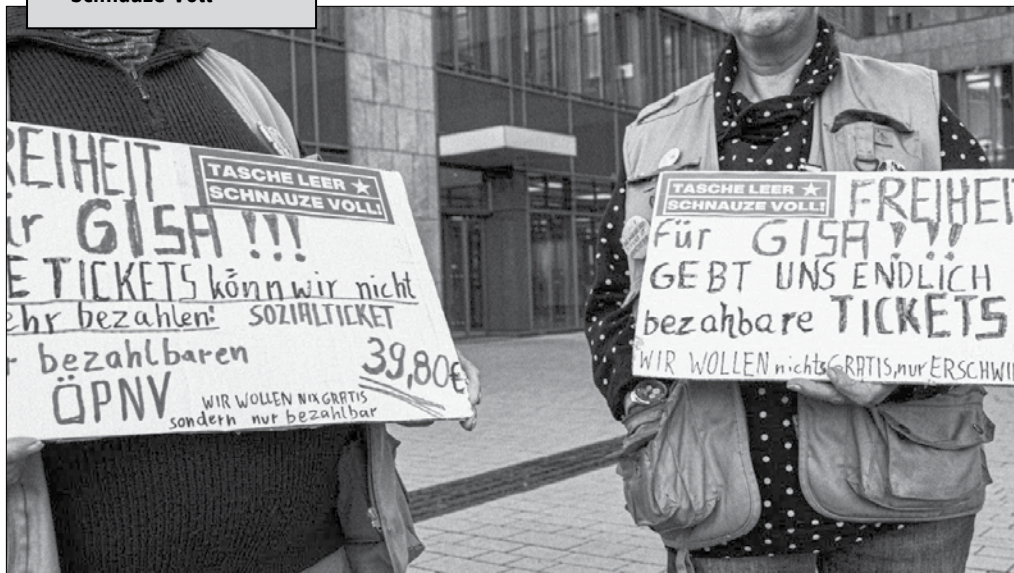 Schnauze Voll
REIHEIT
TASCHE LEER ★
SCHNAUZE VOLL!
GISA !!!
E TICKETS könn wir nicht
ehr bezahlen: SOZIALTICKET
bezahlbaren 39,80€
ÖPNV
WIR WOLLEN NIX GRATIS
sondern nur bezahlbar
TASCHE LEER ★
SCHNAUZE VOLL!
FREIHEI
für GISA !!!
GEBT UNS ENDLICH
bezahbare TICKETS
WIR WOLLEN nichts GRATIS, nur ERSCHWI